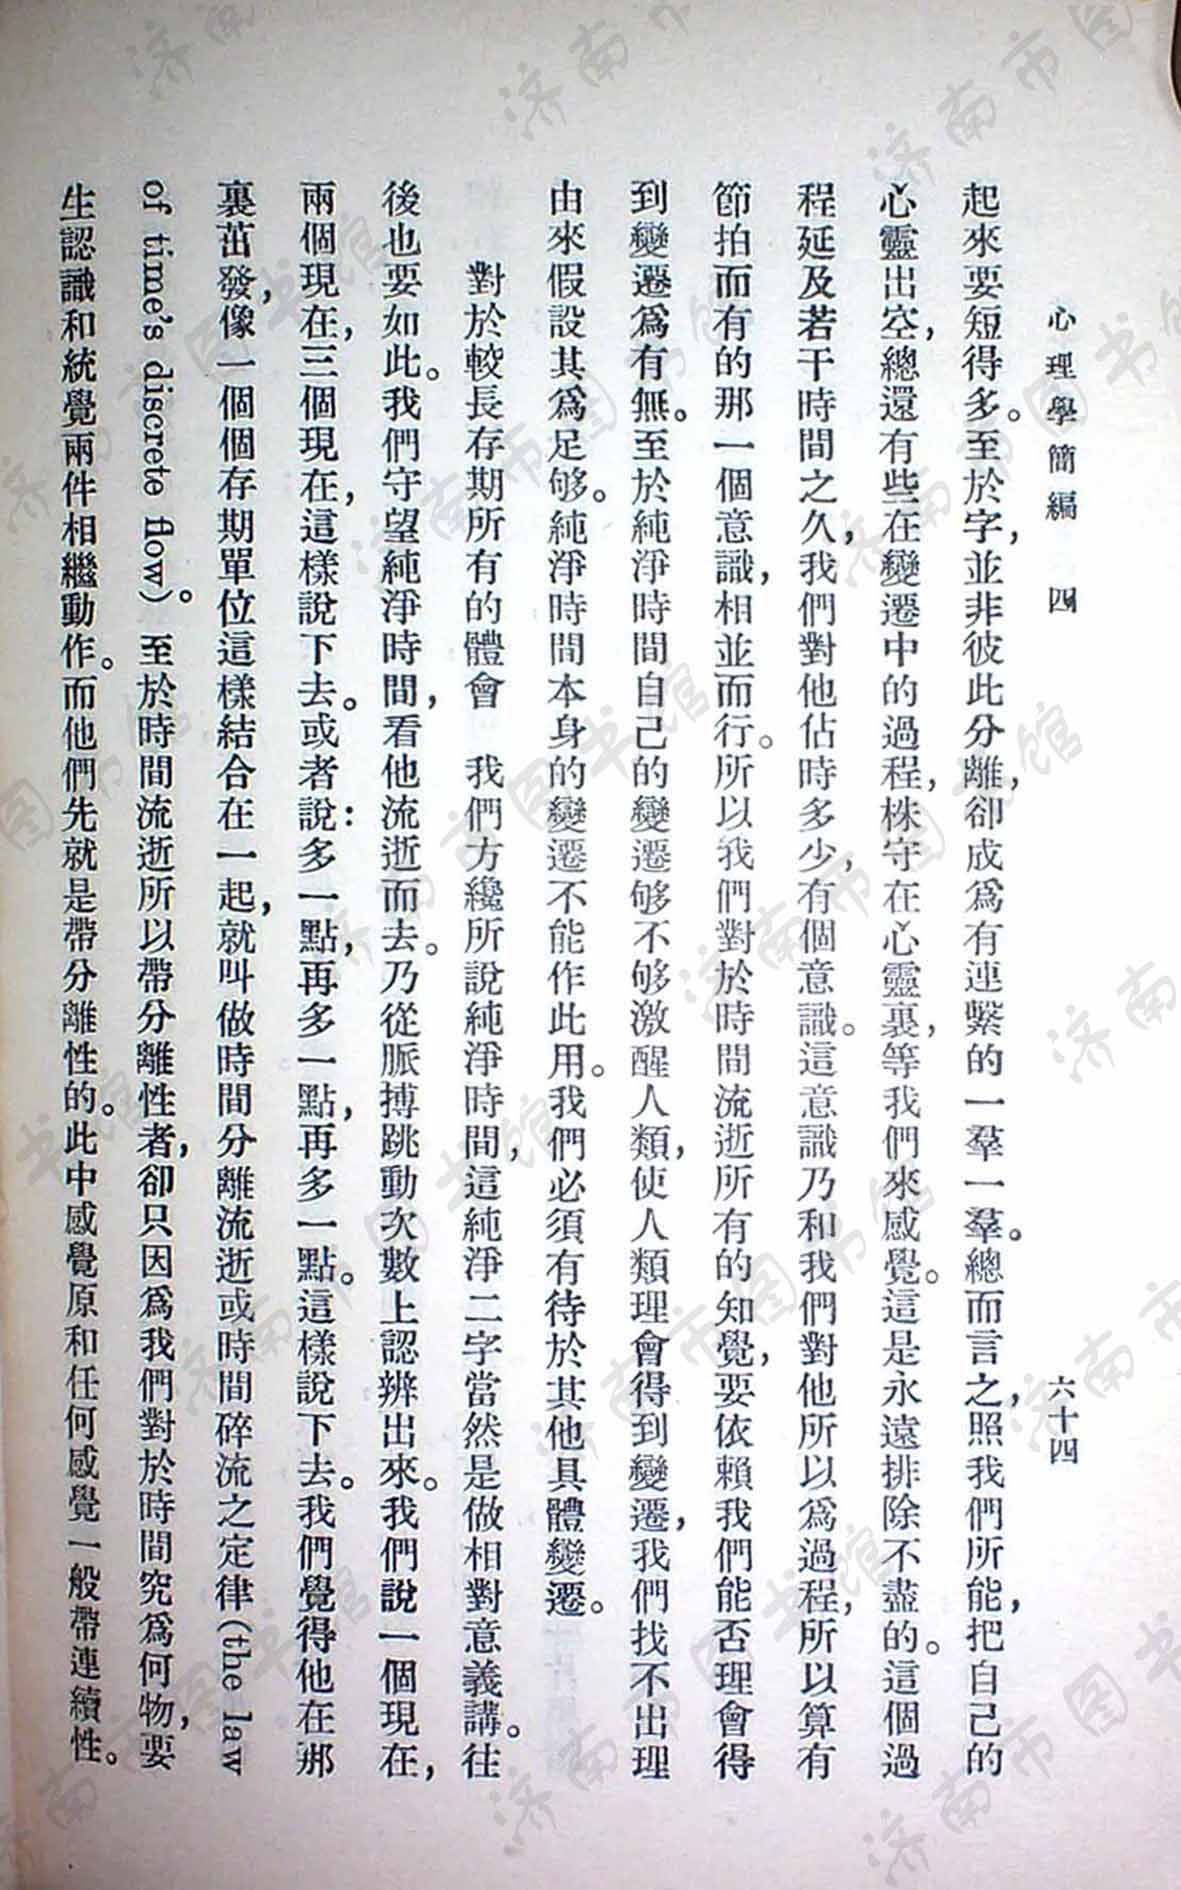 心理學簡編　四　六十四
起來要短得多。至於字，並非彼此分離，卻成爲有連繫的一羣一羣。總而言之，照我們所能，把自己的
心靈出空，總還有些在變遷中的過程，株守在心靈裏，等我們來感覺。這是永遠排除不盡的。這個過
程延及若干時間之久，我們對他佔時多少，有個意識。這意識乃和我們對他所以爲過程，所以算有
節拍而有的那一個意識，相並而行。所以我們對於時間流逝所有的知覺，要依賴我們能否理會得
到變遷爲有無。至於純淨時間自己的變遷够不够激醒人類，使人類理會得到變遷，我們找不出理
由來假設其爲足够。純淨時間本身的變遷不能作此用。我們必須有待於其他具體變遷。
對於較長存期所有的體會　我們方纔所說純淨時間，這純淨二字當然是做相對意義講。往
後也要如此。我們守望純淨時間，看他流逝而去。乃從脈搏跳動次數上認辨出來。我們說一個現在，
兩個現在，三個現在，這樣說下去。或者說：多一點，再多一點，再多一點。這樣說下去。我們覺得他在那
裏茁發，像一個個存期單位這樣結合在一起，就叫做時間分離流逝或時間碎流之定律（the law
of time's discrete flow）。至於時間流逝所以帶分離性者，卻只因爲我們對於時間究爲何物，要
生認識和統覺兩件相繼動作。而他們先就是帶分離性的。此中感覺原和任何感覺一般帶連續性。
济南市图书馆